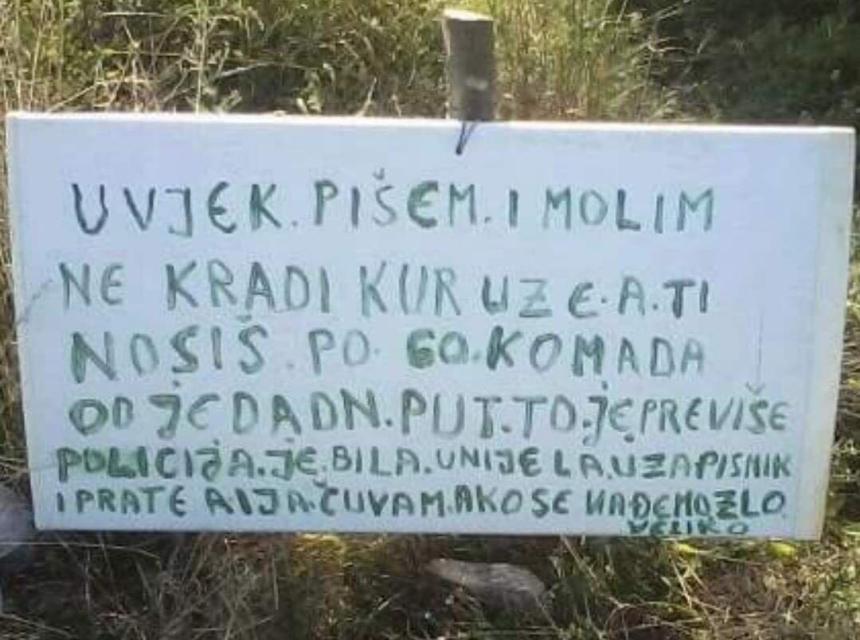 UVJEK. PIŠEM. I MOLIM
NE KRADI KURUZE. A. TI
NOSIŠ. PO. 60. KOMADA
ODJEDADN. PUT. TO. JE PREVIŠE
POLICIJA. JE. BILA. UNIJELA. U ZAPISNIK
I PRATE A I JA. ČUVAM. AKO SE NAĐEMO ZLO
VELIKO